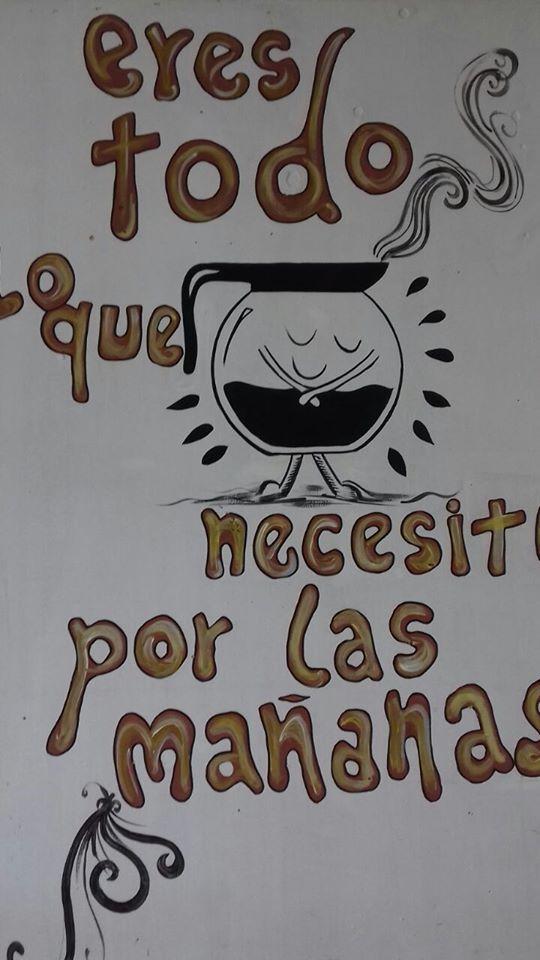 eres
todo
lo que
necesito
por las
mañanas